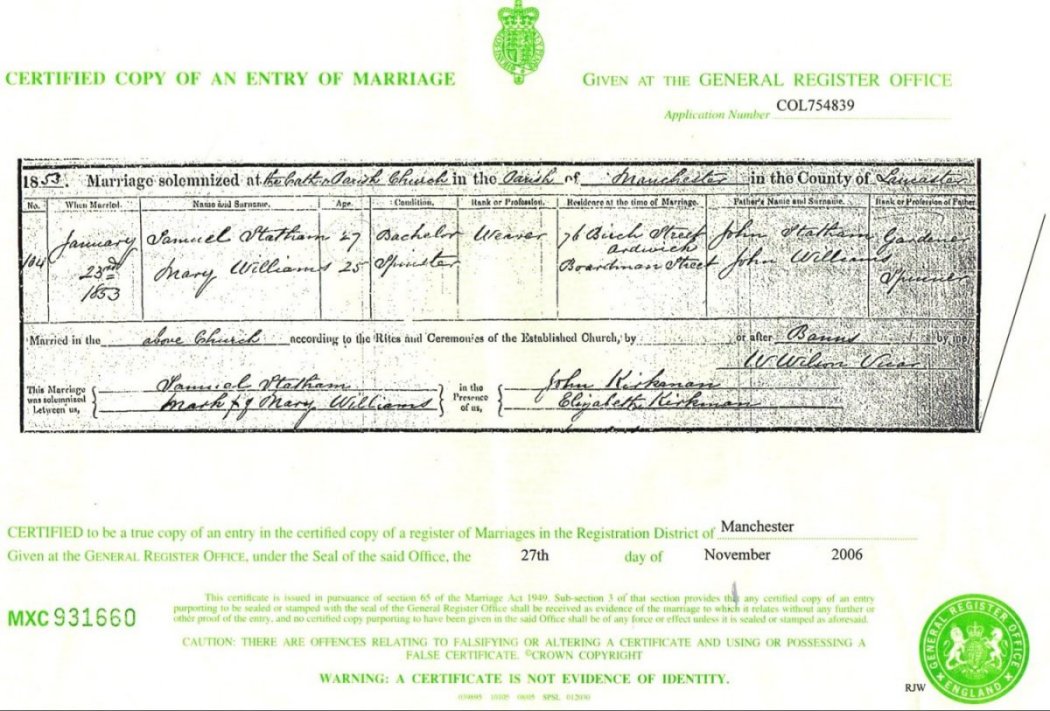 CERTIFIED COPY OF AN ENTRY OF MARRIAGE
GIVEN AT THE GENERAL REGISTER OFFICE
Application Number COL754839
1853. Marriage solemnized at the Parish Church in the Parish of Manchester in the County of Lancaster
No. When Married. Name and Surname. Age. Condition. Rank or Profession. Residence at the time of Marriage. Father's Name and Surname. Rank or Profession of Father
January Samuel Statham 27 Bachelor Weaver 76 Birch Street John Statham Gardener
104 23rd ardwick
Mary Williams 25 Spinster Boardman Street John Williams
1853 Spinner
Married in the above Church according to the Rites and Ceremonies of the Established Church, by or after Banns by me,
W Wilson Vicar
This Marriage was solemnized between us, Samuel Statham in the Presence of us, John Kirkman
Mark of Mary Williams Elizabeth Kirkman
CERTIFIED to be a true copy of an entry in the certified copy of a register of Marriages in the Registration District of Manchester
Given at the GENERAL REGISTER OFFICE, under the Seal of the said Office, the 27th day of November 2006
This certificate is issued in pursuance of section 65 of the Marriage Act 1949. Sub-section 3 of that section provides that any certified copy of an entry
purporting to be sealed or stamped with the seal of the General Register Office shall be received as evidence of the marriage to which it relates without any further or
other proof of the entry, and no certified copy purporting to have been given in the said Office shall be of any force or effect unless it is sealed or stamped as aforesaid.
MXC 931660
CAUTION: THERE ARE OFFENCES RELATING TO FALSIFYING OR ALTERING A CERTIFICATE AND USING OR POSSESSING A
FALSE CERTIFICATE. ©CROWN COPYRIGHT
WARNING: A CERTIFICATE IS NOT EVIDENCE OF IDENTITY.
RJW
GENERAL REGISTER OFFICE
ENGLAND